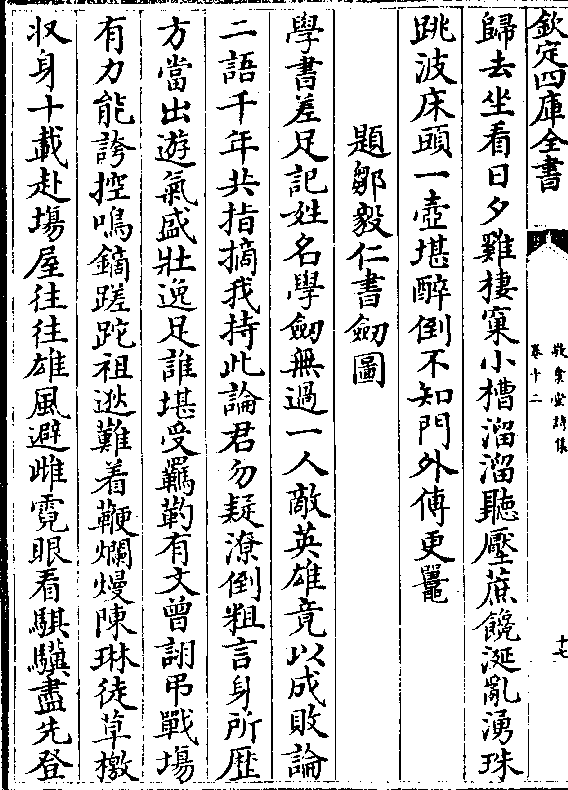 欽定四庫全書
敬業堂詩集
卷十二
十七
歸去坐看日夕雞棲窠小槽溜溜聽壓蔗饞涎亂湧珠
跳波床頭一壺堪醉倒不知門外傅更鼉
題鄒毅仁書劒圖
學書差足記姓名學劒無過一人敵英雄竟以成敗論
二語千年共指摘我持此論君勿疑潦倒粗言身所歴
方當出遊氣盛壯逸足誰堪受羈靮有文曾詡弔戰塲
有力能誇控鳴鏑蹉跎祖逖難着鞭爛熳陳琳徒草檄
収身十載赴塲屋往往雄風避雌霓眼看騏驥盡先登